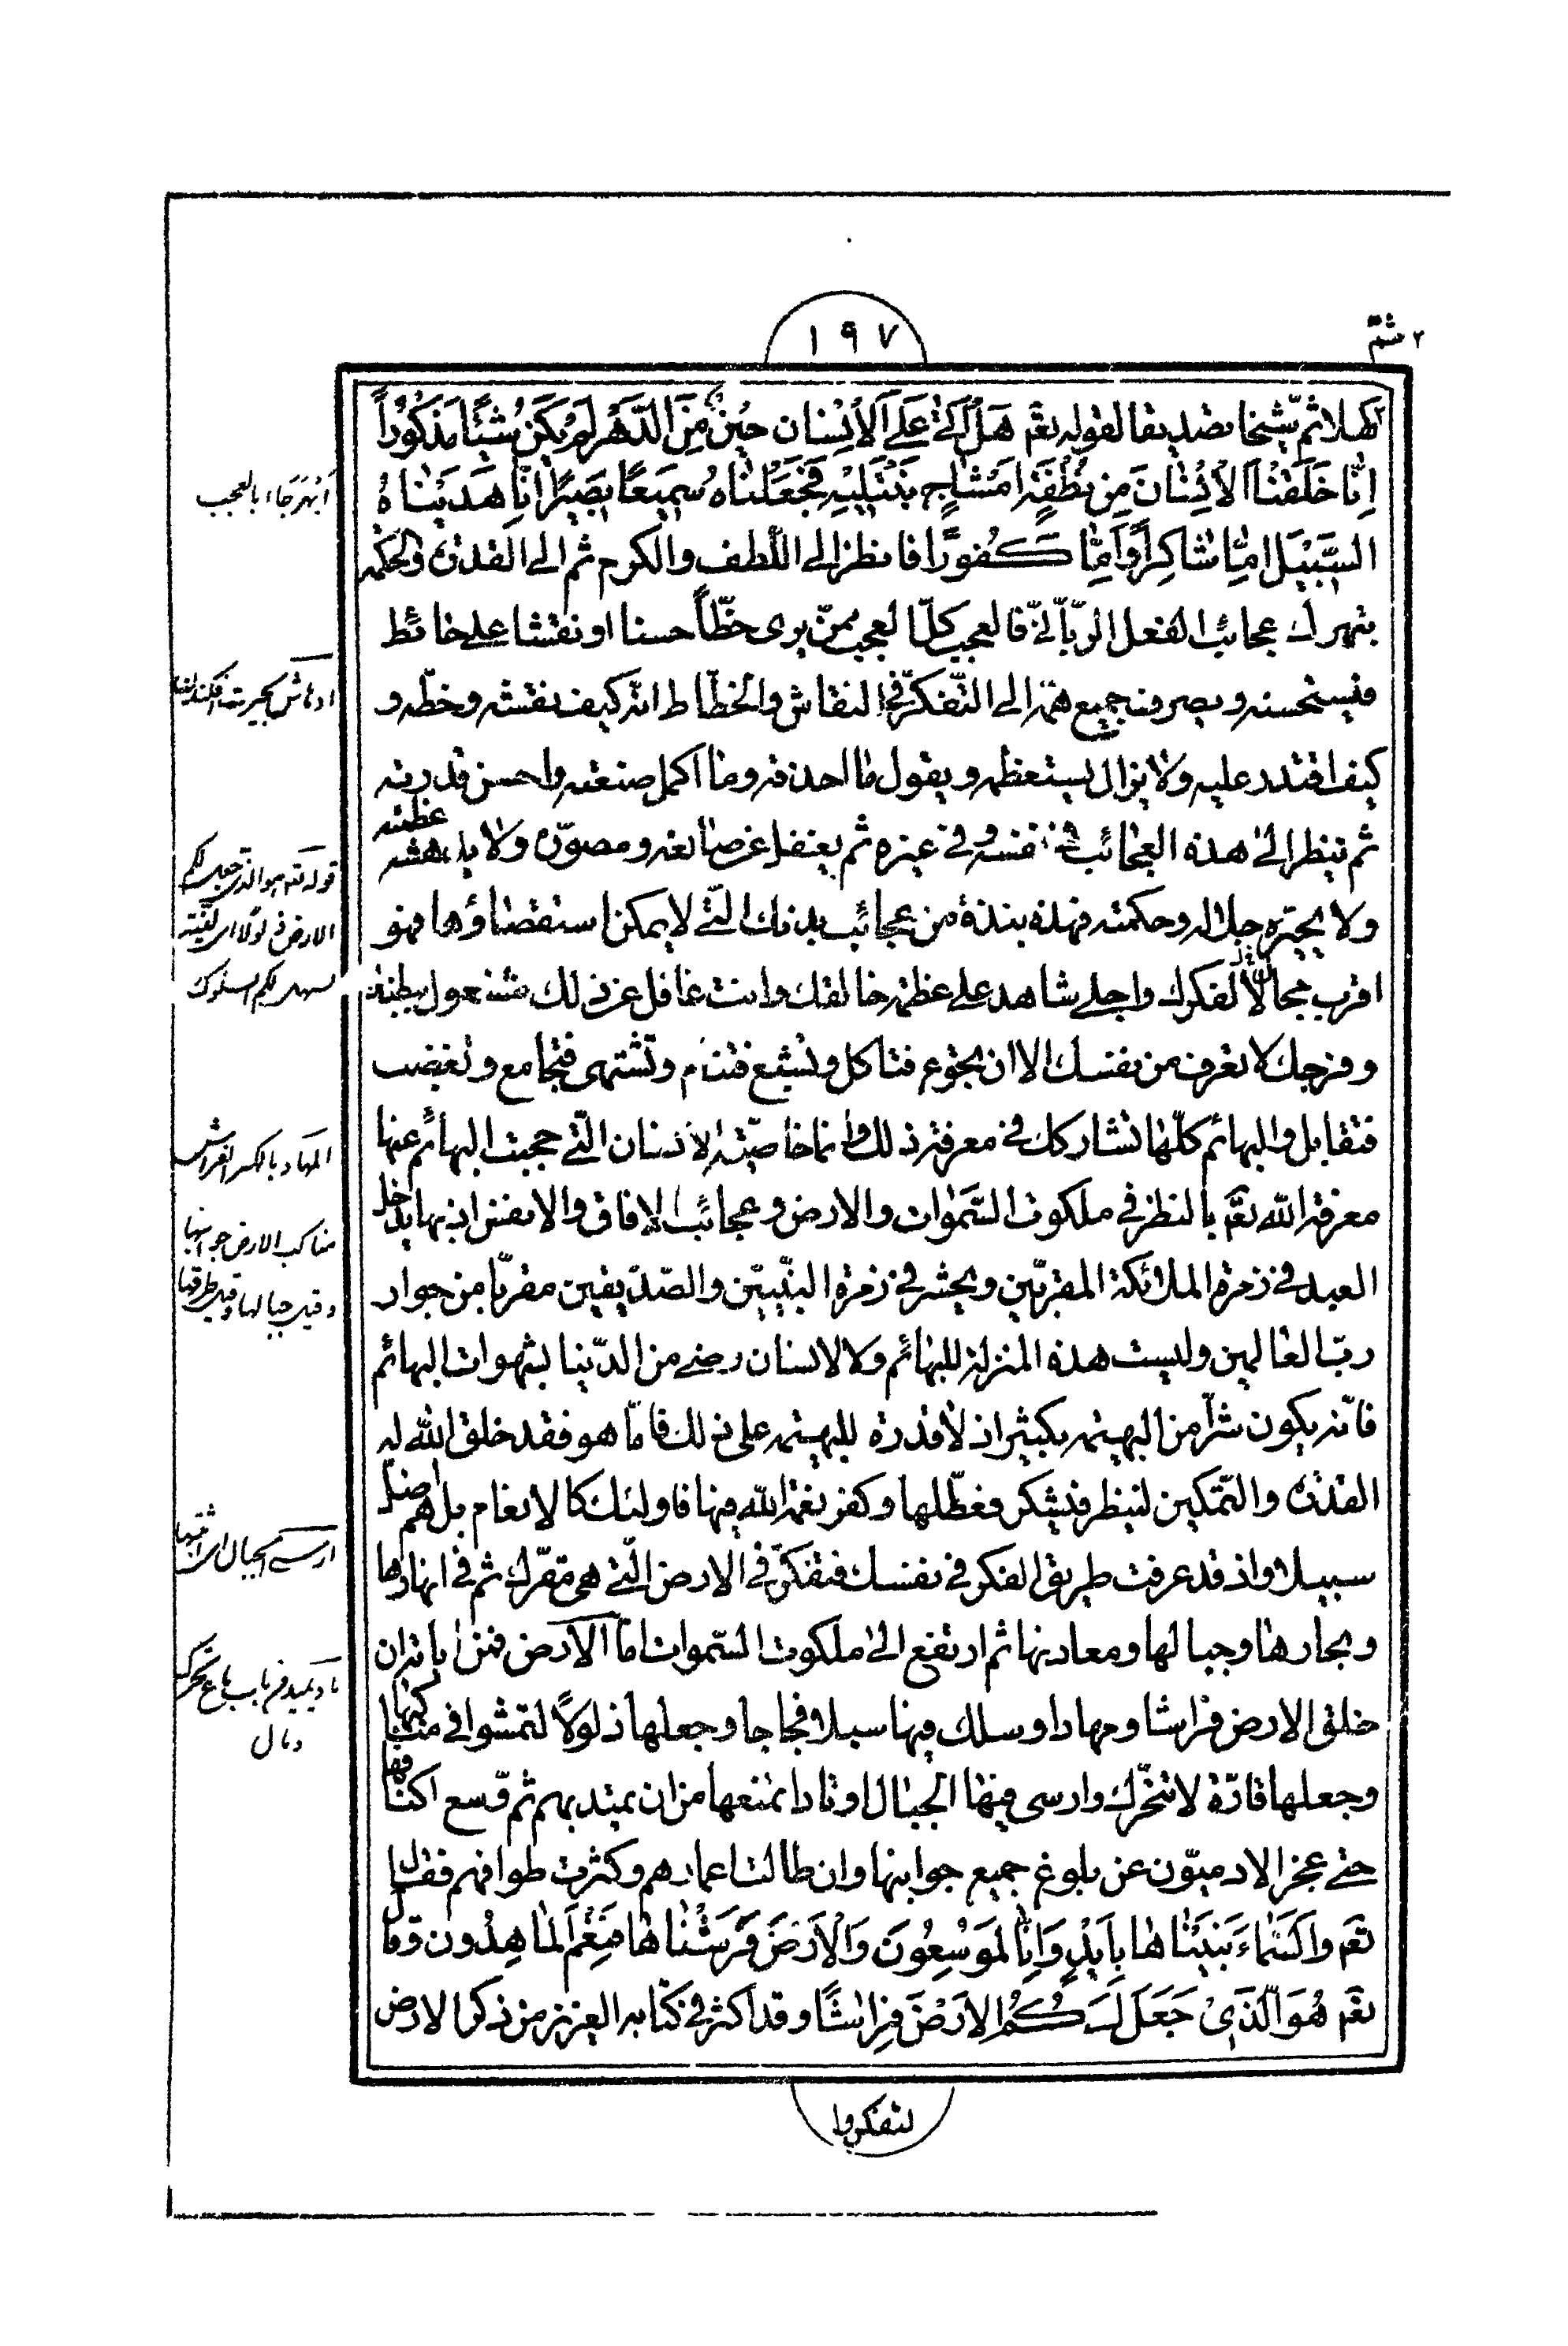 ١٩٧
٢ ثمّ
كهلا ثم شيخا تصديقا لقوله تعم هَلْ اَتىٰ عَلَى اَلاِنْسٰانِ حِينٌ مِنَ الدَّهْرِ لَمْ يَكُنْ شَيْئًا مَذْكُوْراً
اِنّٰا خَلَقْنَا اَلاِنْسٰانَ مِنْ نُطْفَةٍ اَمْشٰاجٍ نَبْتَلِيْهِ فَجَعَلْنٰاهُ سَمِيْعًا بَصِيْرًا اِنّٰا هَدَيْنٰاهُ
السَّبِيْلَ اِمّٰا شٰاكِراً وَاِمّٰا كَفُورًا فانظر الى اللّطف والكرم ثم الى القدرة والحكمة
تبهرك عجائب الفعل الربّانّي فالعجب كلّ العجب ممّن يرى خطّاً حسنا او نقشا على حائط
فيستحسنه ويصرف جميع همّه الى التّفكّر في النقاش والخطّاط انّه كيف نقشه وخطّه و
كيف اقتدر عليه ولا يزال يستعظمه ويقول ما احذقه وما اكمل صنعته واحسن قدرته
ثم ينظر الى هذه العجائب في نفسه وفي غيره ثم يغفل عن صانعه ومصوّره ولا يدهشه عظمته
ولا يحيّره جلاله وحكمته فهذه نبذة من عجائب بدنك الّتي لا يمكن استقصاؤها فهو
اقرب مجالّا لفكرك واجلى شاهد على عظمة خالقك وانت غافل عن ذلك مشغول ببطنك
وفرجك لا تعرف من نفسك الا ان تجوع فتأكل وتشبع فتنام وتشتهى فتجامع وتغضب
فتقابل والبهائم كلّها تشاركك في معرفة ذلك وانما خاصيّة الانسان الّتي حجبت البهائم عنها
معرفة الله تعم بالنظر في ملكوت السّمٰوات والارض وعجائب الافاق والانفس اذ بها يدخل
العبد في زمرة الملائكة المقرّبين ويحشر في زمرة النبّيين والصّدّيقين مقربّا من جوار
ربّ العالمين وليست هذه المنزلة للبهائم ولا لانسان رضى من الدّنيا بشهوات البهائم
فانّه يكون شرّا من البهيمة بكثير اذ لا قدرة للبهيمة على ذلك فامّا هو فقد خلق الله له
القدرة والتّمكين لينظر فيشكر فعطّلها وكفر نعمة الله فيها فاولئك كالانعام بل هم اضلّ
سبيلا واذ قد عرفت طريق الفكر في نفسك فتفكّر في الارض الّتي هي مقرّك ثم في انهارها
وبحارها وجبالها ومعادنها ثم ارتفع الى ملكوت السّموات امّا الارض فمن اياته ان
خلق الارض فراشا ومهادا وسلك فيها سبلا فجاجا وجعلها ذلولًا لتمشوا في مناكبها
وجعلها قارّة لا تتحرّك وارسى فيها الجبال اوتادا تمنعها من ان يميد بهم ثم وّسع اكنافها
حتى عجز الادميّون عن بلوغ جميع جوانبها وان طالت اعمارهم وكثرت طوافهم فقال
تعم والسَّمٰاءَ بَنَيْنٰاهٰا بِاَيْدٍ وَاِنّٰا لَمُوْسِعُونَ وَالْاَرْضَ فَرَشْنٰاهٰا فَنِعْمَ الْمٰاهِدُون وقال
تعم هُوَ الّذَىْ جَعَلَ لَكُمُ الاَرْضَ فِرٰاشًا وقد اكثر في كتابه العزيز من ذكر الارض
ليتفكروا
اَبْهَرَ جَاءَ بالعجب
قوله تعم هو الذى جعل لكم
الارض ذلولا اى ليّنة
ليسهل لكم السلوك
المهاد بالكسر الفراش
مناكب الارض جوانبها
وقيل جبالها وقيل طرقها
ارسى الجبال اى اثبتها